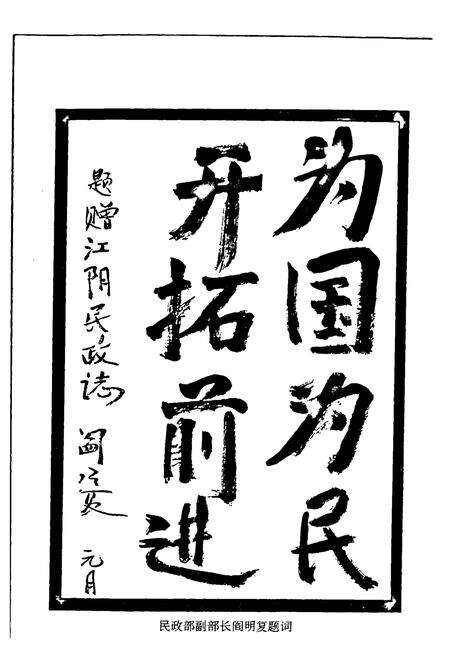 为国为民
开拓前进
题赠江阴民政誌
阎明复
元月
民政部副部长阎明复题词